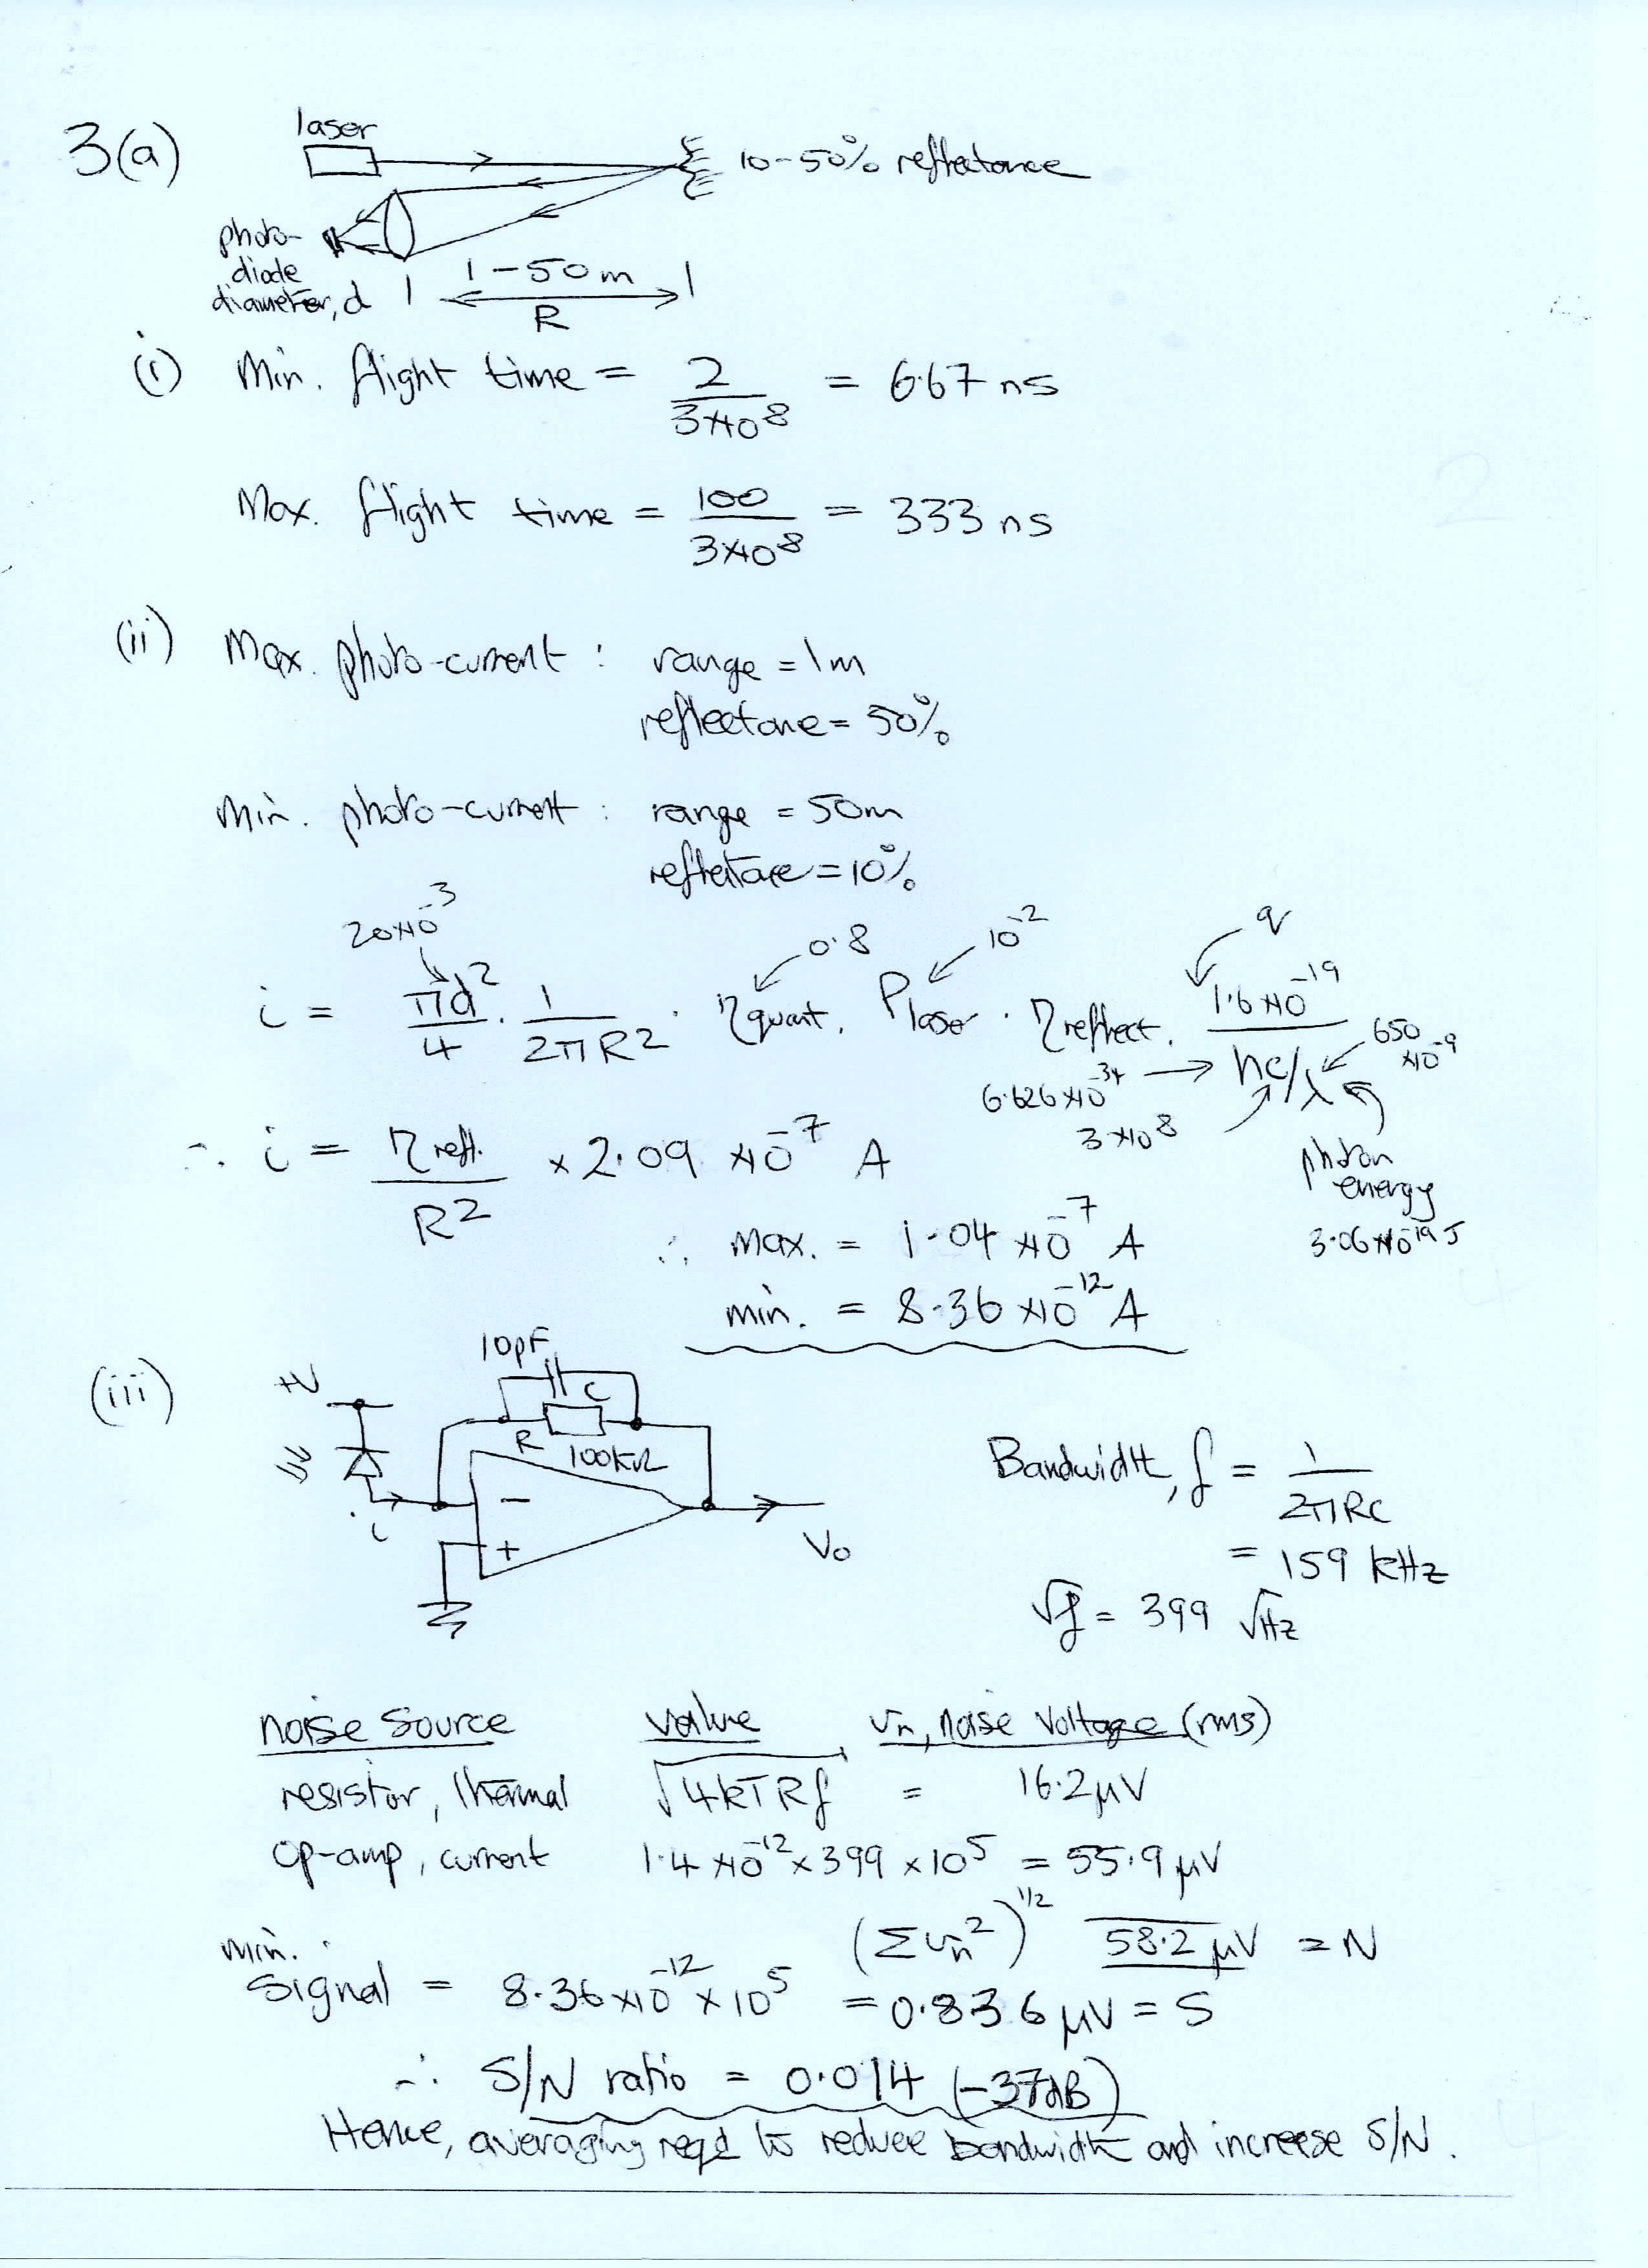 3(a)
laser
10-50% reflectance
photo-
diode
diameter, d
1-50m
R
(i) Min. flight time = 2 / 3×10^8 = 6.67 ns
Max. flight time = 100 / 3×10^8 = 333 ns
(ii) Max. photo-current : range = 1m
reflectance = 50%
Min. photo-current : range = 50m
reflectance = 10%
20×10^-3
0.8
10^-2
q
i = πd^2/4 . 1/2πR^2 . η quant. P laser . η reflect. 1.6×10^-19 / hc/λ
650 ×10^-9
6.626×10^-34
3×10^8
photon
energy
3.06×10^-19 J
∴ i = η refl. / R^2 × 2.09 ×10^-7 A
∴ max. = 1.04 ×10^-7 A
min. = 8.36 ×10^-12 A
(iii)
+V
10pF
C
R 100kΩ
i
-
+
Vo
Bandwidth, f = 1 / 2πRC
= 159 kHz
√f = 399 √Hz
noise source value vn, noise voltage (rms)
resistor, thermal √4kTRf = 16.2μV
op-amp, current 1.4×10^-12 × 399 × 10^5 = 55.9 μV
(Σvn^2)^1/2 58.2 μV = N
min.
signal = 8.36×10^-12 × 10^5 = 0.836 μV = S
∴ S/N ratio = 0.014 (-37dB)
Hence, averaging reqd to reduce bandwidth and increase S/N.